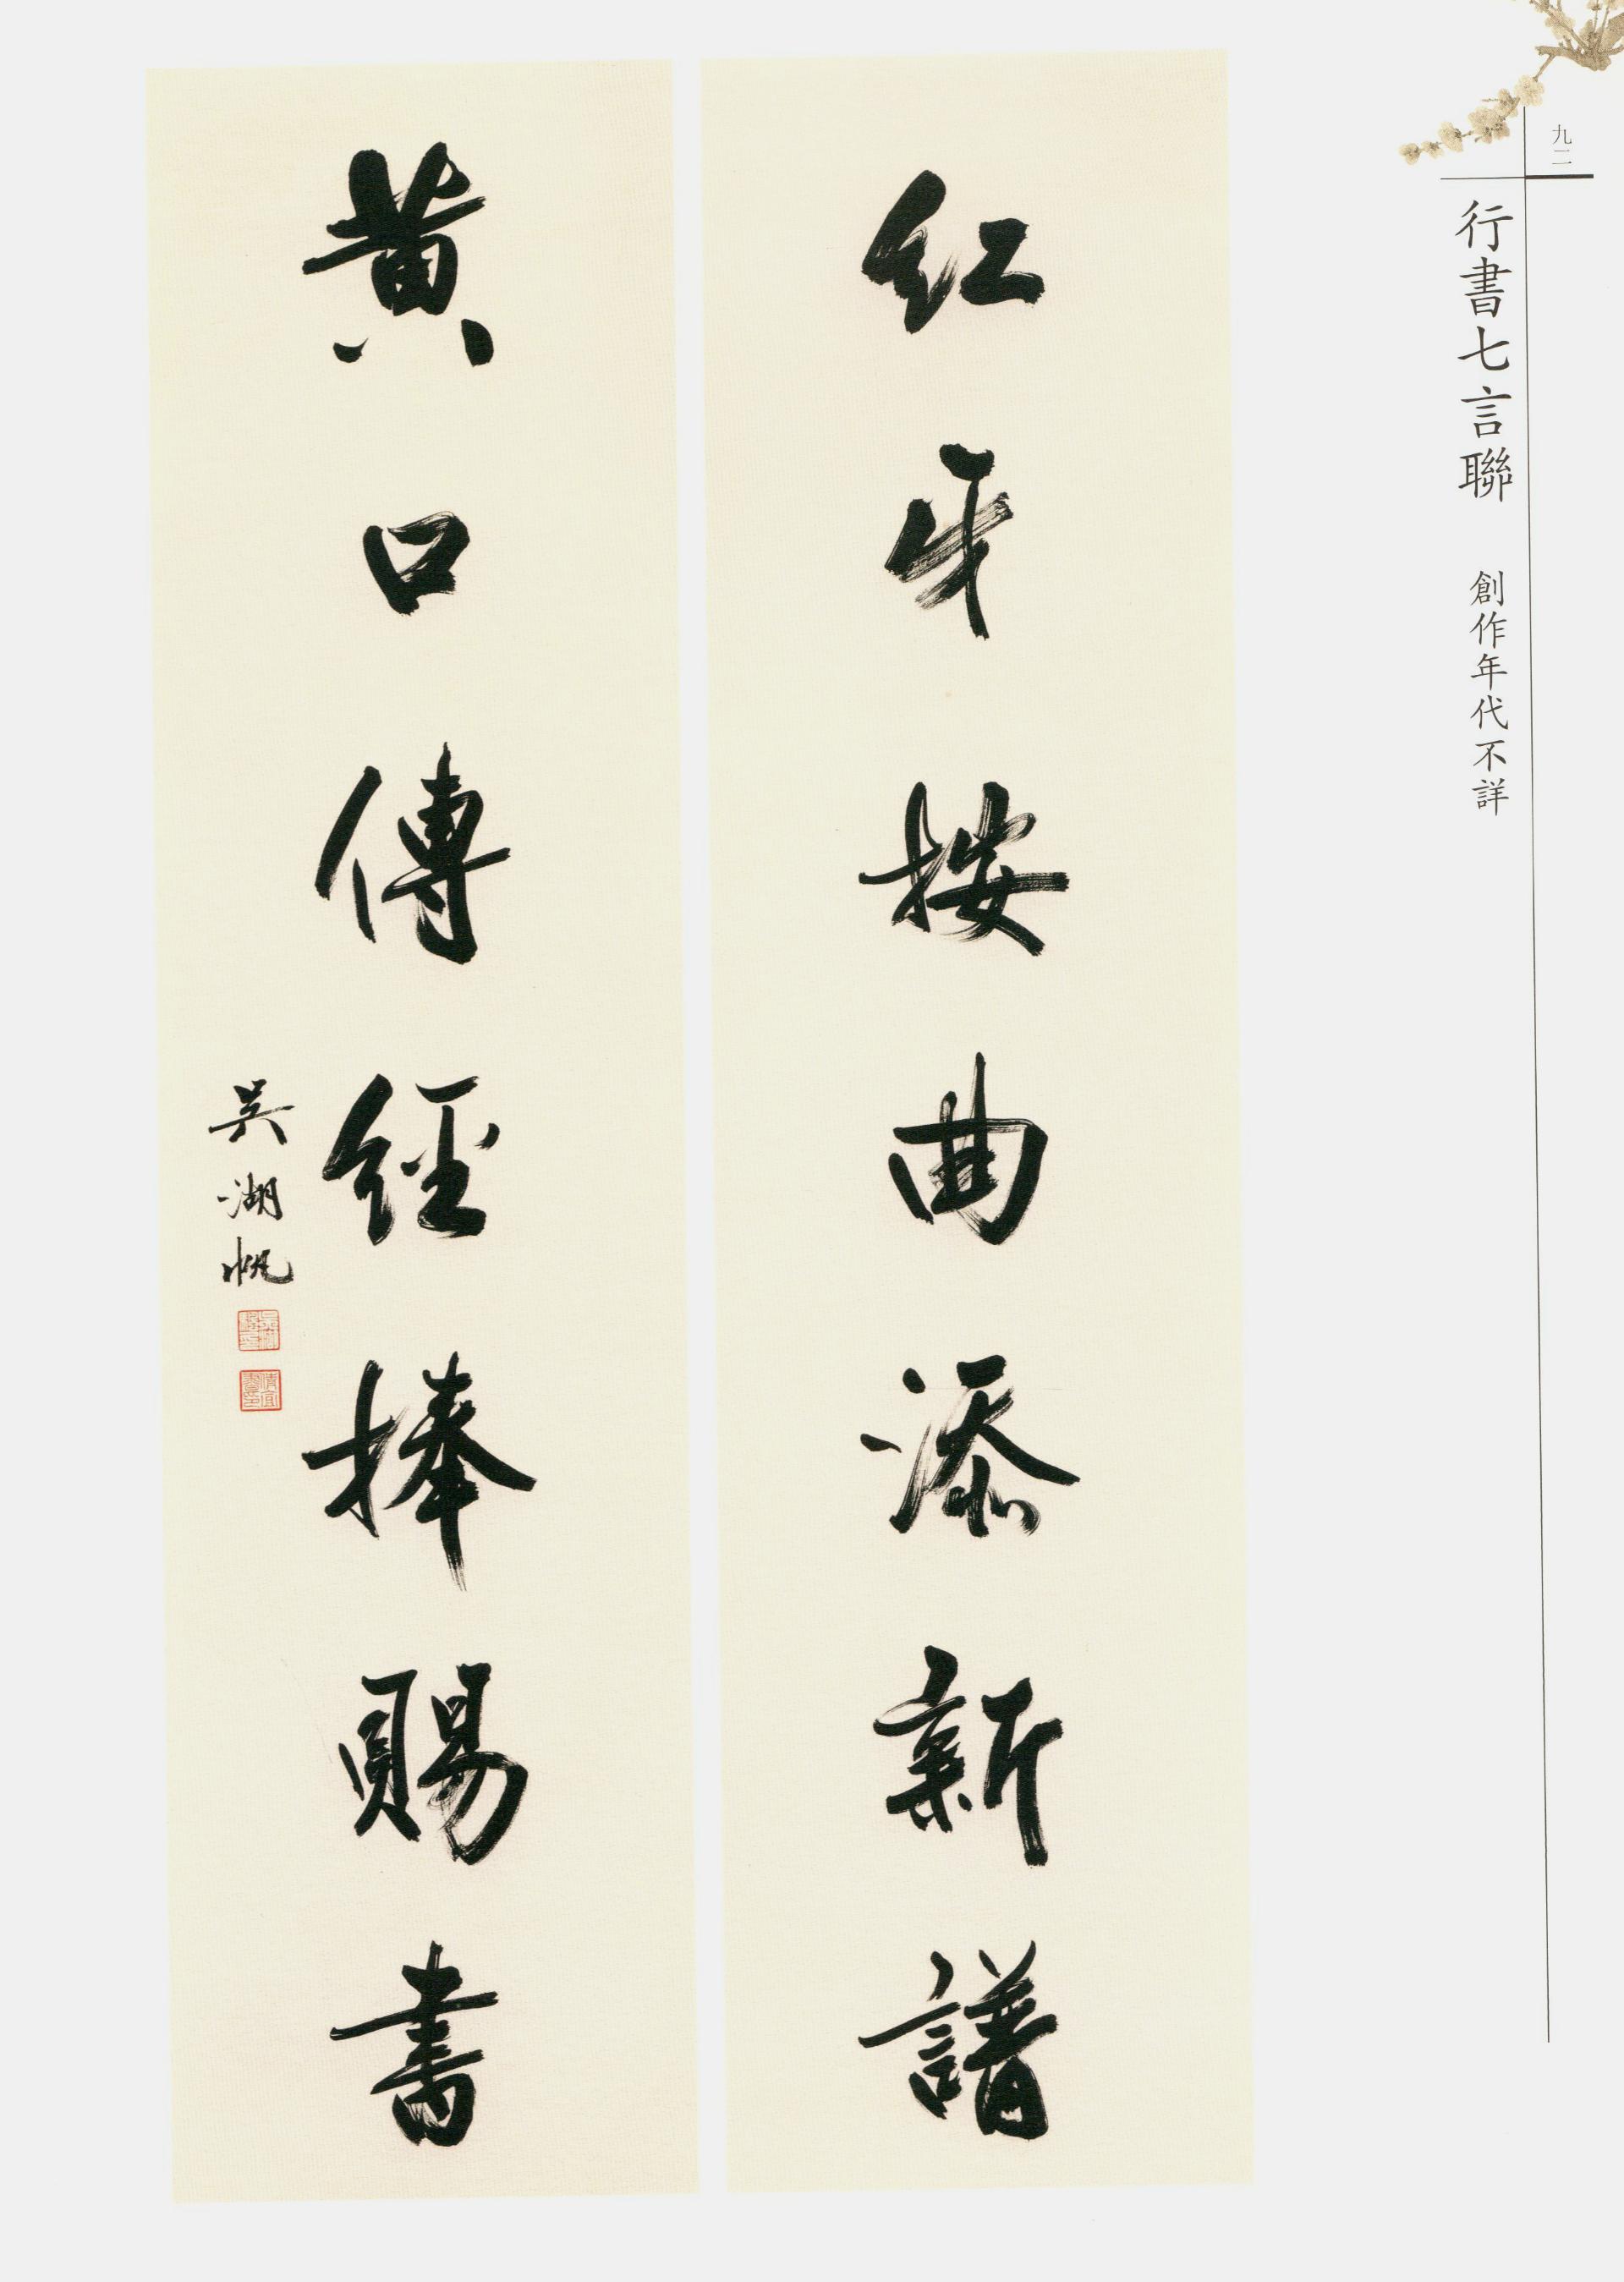 九二
行書七言聯　創作年代不詳
紅牙按曲添新譜
黃口傳經捧賜書
吳湖帆